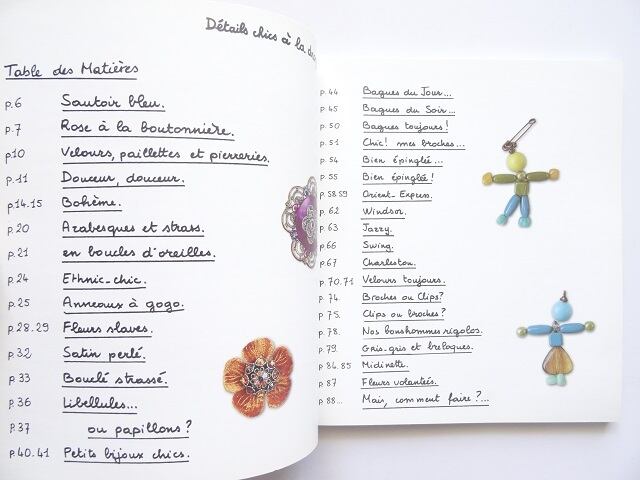 Détails chics à la
Table des Matières
p.6 Sautoir bleu.
p.7 Rose à la boutonnière.
p10 Velours, paillettes et pierreries.
p.11 Douceur, douceur.
p14.15 Bohème.
p.20 Arabesques et strass.
p.21 en boucles d'oreilles.
p.24 Ethnic-chic.
p.25 Anneaux à gogo.
p.28.29 Fleurs slaves.
p.32 Satin perlé.
p.33 Bouclé strassé.
p.36 Libellules...
p.37 ou papillons ?
p.40.41 Petits bijoux chics.
p.44 Bagues du Jour...
p.45 Bagues du Soir...
p.50 Bagues toujours !
p.51 Chic ! mes broches...
p.54 Bien épinglé...
p.55 Bien épinglé !
p.58.59 Orient-Express.
p.62 Windsor.
p.63 Jazzy.
p.66 Swing.
p.67 Charleston.
p.70.71 Velours toujours.
p.74. Broches ou Clips?
p.75. Clips ou broches?
p.78. Nos bonshommes rigolos.
p.79. Gris-gris et breloques.
p.84.85 Midinette.
p.87 Fleurs volantées.
p.88... Mais, comment faire ?...